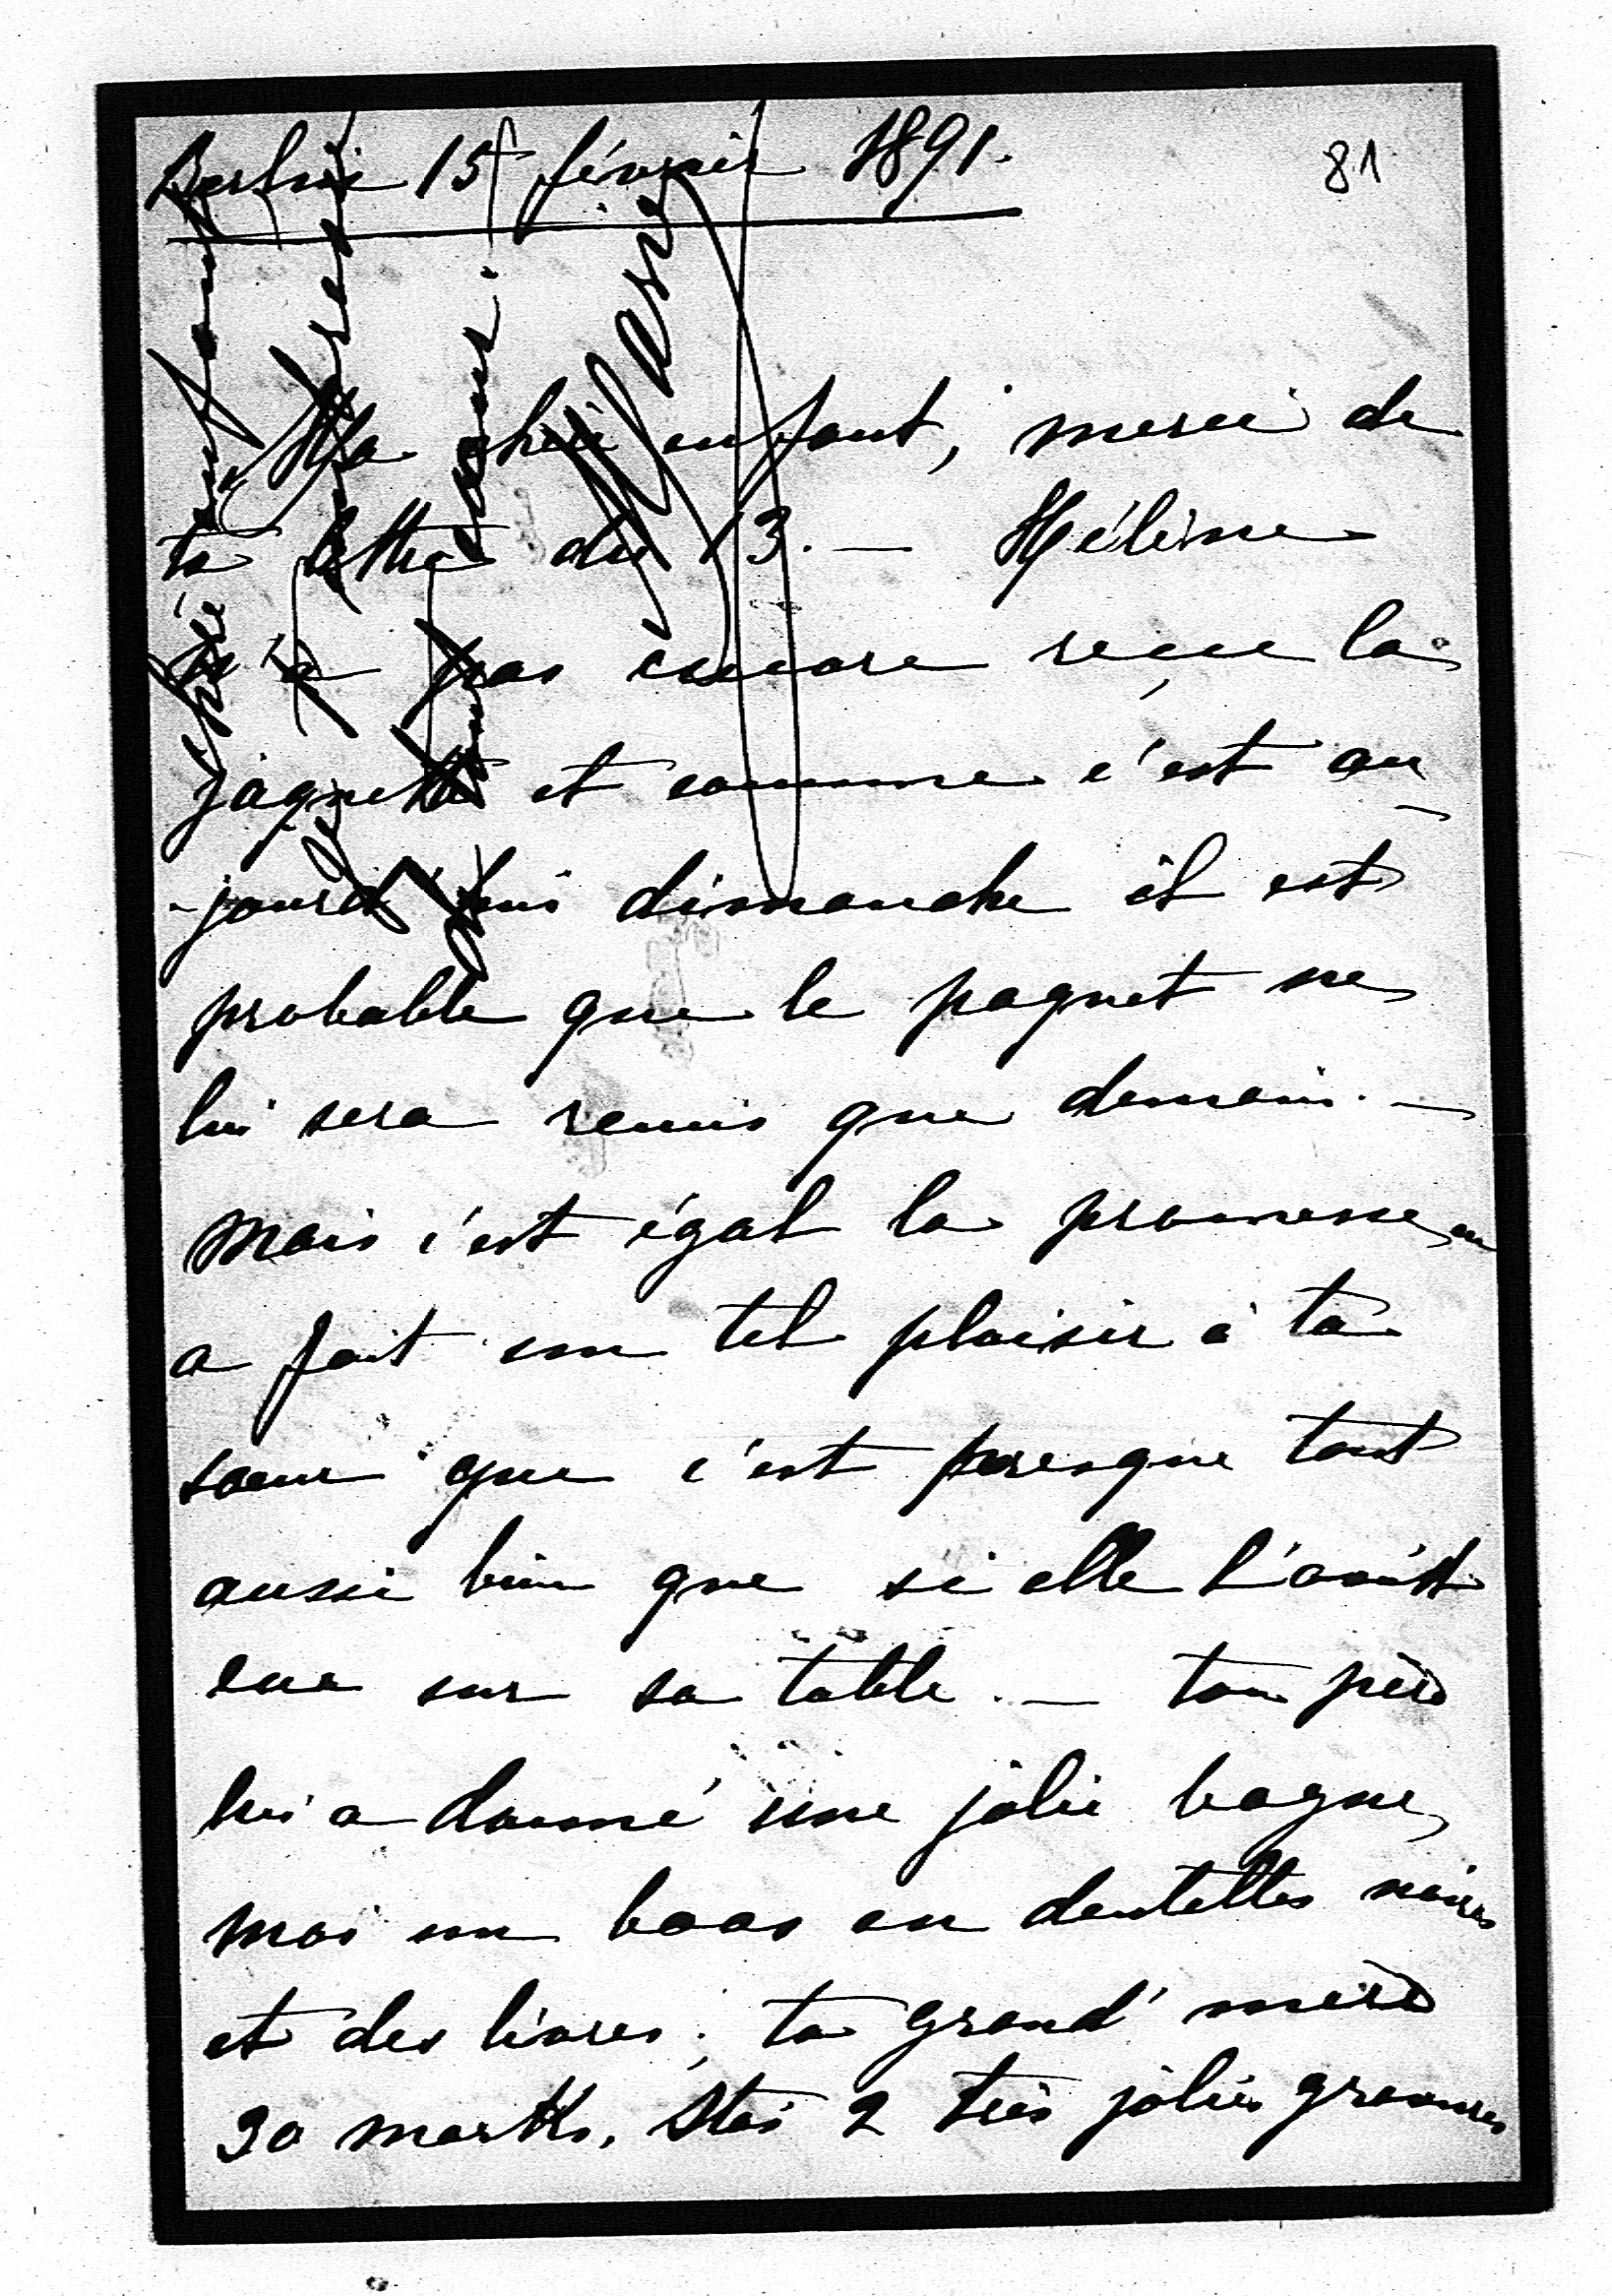 Berlin 15 février 1891.
81
Ma chère enfant, merci de
ta lettre du 13. — Hélène
n'a pas encore reçue la
jaquette et comme c'est au
-jourd'hui dimanche il est
probable que le paquet ne
lui sera remis que demain. —
Mais c'est égal la promesse en
a fait un tel plaisir à ta
soeur que c'est presque tout
aussi bien que si elle l'avait
eue sur sa table. — ton père
lui a donné une jolie bague,
moi un boas en dentelles noires
et des livres; ta grand' mère
30 marks, 2 très jolies gravures
Marie